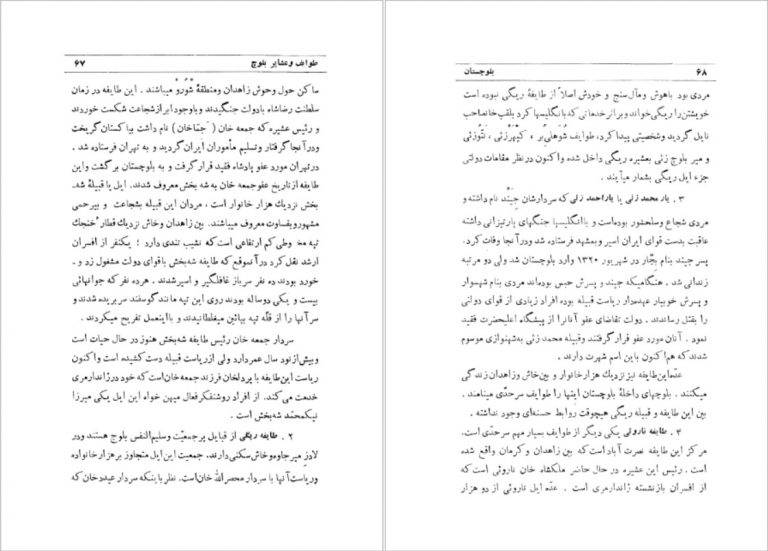 طوایف و عشایر بلوچ ۶۷
ساکن حول وحوش زاهدان ومنطقهٔ شورو میباشند . این طایفه در زمان
سلطنت رضاشاه بادولت جنگیدند وباوجود ابراز شجاعت شکست خوردند
و رئیس عشیره که جمعه خان ( جماخان ) نام داشت بپاکستان گریخت
ودر آنجا گرفتار وتسلیم مأموران ایران گردید و به تهران فرستاده شد .
درتهران مورد عفو پادشاه فقید قرار گرفت و به بلوچستان برگشت واین
طایفه از تاریخ عفو جمعه خان به شه بخش معروف شدند. ایل یا قبیله شه‌ـ
بخش نزدیك هزار خانوار است ، مردان این قبیله بشجاعت و بیرحمی
مشهور وبقساوت معروف میباشند. بین زاهدان وخاش نزدیك قطار خنجك
تپه مخروطی کم ارتفاعی است که نشیب تندی دارد ؛ یکنفر از افسران
ارشد نقل کرد در آنموقع که طایفه شه‌بخش باقوای دولت مشغول زد و ـ
خورد بودند ده نفر سرباز غافلگیر و اسیر شدند. هرده نفر که جوانهائی
بیست و یکی دوساله بودند روی این تپه مانند گوسفند سر بریده شدند و
سر آنها را از قلّه تپه بپائین میغلطانیدند و بااینعمل تفریح میکردند.
سردار جمعه خان رئیس طایفه شه‌بخش هنوز در حال حیات است
وبیش از نود سال عمر دارد ولی از ریاست قبیله دست کشیده است و اکنون
ریاست این طایفه با پردلخان فرزند جمعه خان است که خود در ژاندارمری
خدمت می کند. از افراد روشنفکر فعال میهن خواه این ایل یکی میرزا
نیکمحمد شه‌بخش است .
۲ . طایفه ریگی از قبایل پر جمعیت وسلیم‌النفس بلوچ هستند ودر
لادز میرجاوه و خاش سکنی دارند. جمعیت این ایل متجاوز بر هزار خانواده
وریاست آنها با سردار محصرالله خان است. نظر باینکه سردار عیدوخان که
۶۸ بلوچستان
مردی بود باهوش ومآل سنج و خودش اصلا از طایفهٔ ریگی نبوده است
خویشتن را ریگی خواند و بر اثر خدماتی که بانگلیسها کرد بلقب خانصاحب
نایل گردید وشخصیتی پیدا کرد، طوایف شوهلی‌بر ، کیهرزئی ، نتوزئی
و میر بلوچ زئی بعشیره ریگی داخل شده و اکنون در نظر مقامات دولتی
جزء ایل ریگی بشمار میآیند .
۳ . یار محمد زئی یا یار احمد زئی که سردارشان جیند نام داشته و
مردی شجاع وسلحشور بوده است و با انگلیسها جنگهای پارتیزانی داشته
عاقبت بدست قوای ایران اسیر وبمشهد فرستاده شد ودر آنجا وفات کرد.
پسر جیند بنام بجّار در شهریور ۱۳۲۰ وارد بلوچستان شد ولی دو مرتبه
زندانی شد . هنگامیکه جیند و پسرش حبس بوده‌اند مردی بنام شهسوار
و پسرش خوبیار عهده‌دار ریاست قبیله بوده افراد زیادی از قوای دولتی
را بقتل رساندند . دولت تقاضای عفو آنانرا از پیشگاه اعلیحضرت فقید
نمود . آنان مورد عفو قرار گرفتند وقبیله محمد زئی به شهنوازی موسوم
شدند که هم اکنون باین اسم شهرت دارند .
عدّه این طایفه نیز نزدیك هزار خانوار و بین خاش وزاهدان زندگی
میکنند . بلوچهای داخلهٔ بلوچستان اینها را طوایف سرحدّی مینامند .
بین این طایفه و قبیله ریگی هیچوقت روابط حسنه‌ای وجود نداشته .
۴ . طایفه ناروئی یکی دیگر از طوایف بسیار مهم سرحدّی است.
مرکز این طایفه نصرت آباد است که بین زاهدان و کرمان واقع شده
است . رئیس این عشیره در حال حاضر ملکشاه خان ناروئی است که
از افسران بازنشسته ژاندارمری است . عدّه ایل ناروئی از دو هزار